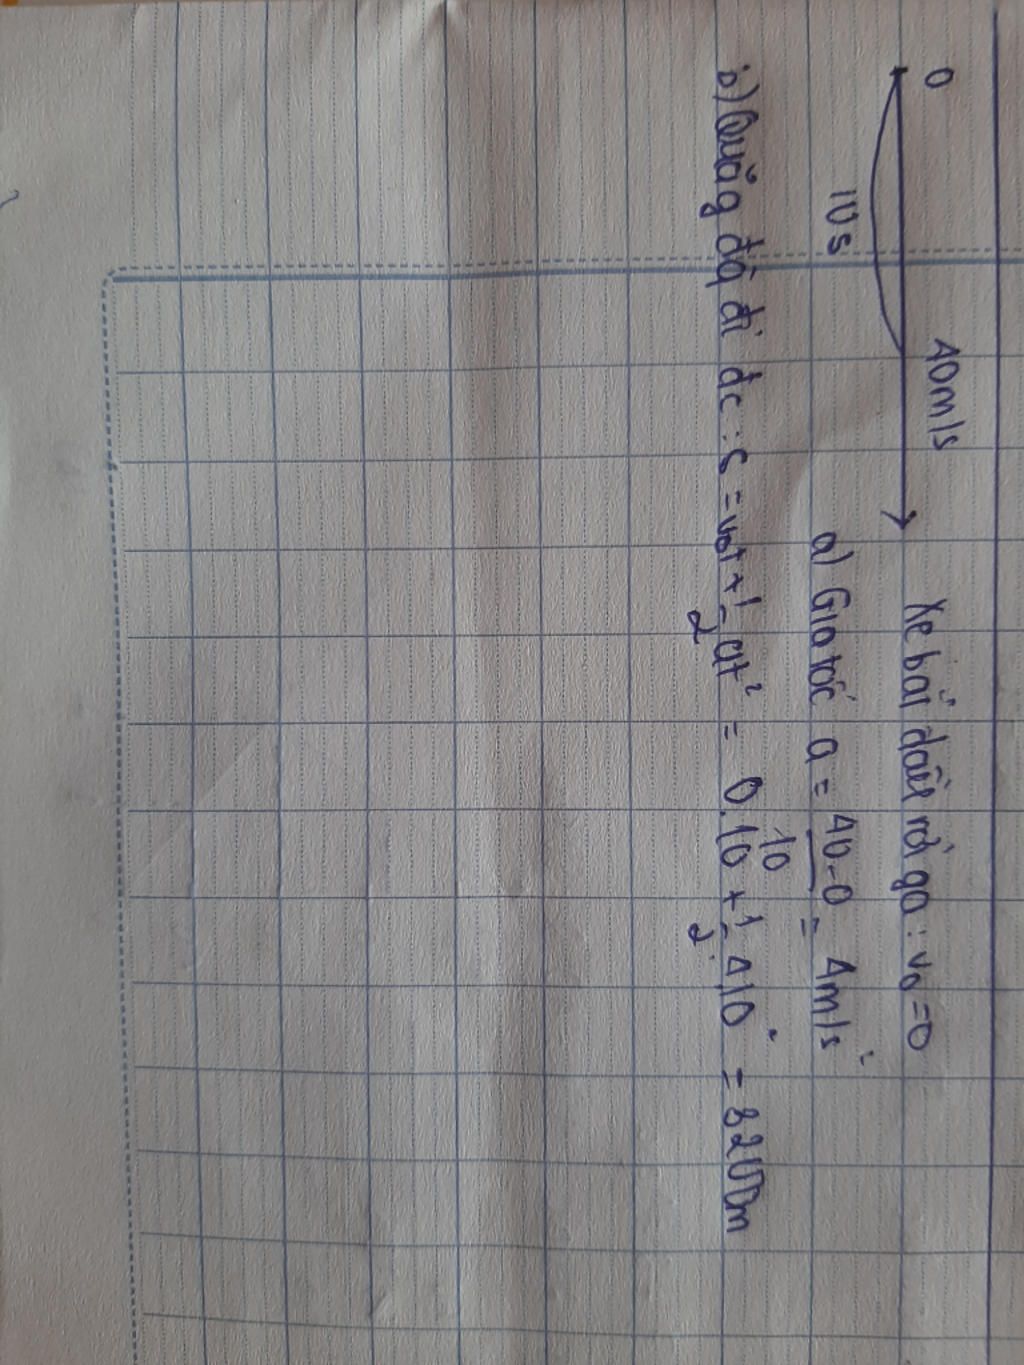 0 40m/s
10s
Xe bắt đầu rời ga : v₀ = 0
a) Gia tốc a = 40-0/10 = 4m/s²
b) Quãg đg đi đc : S = v₀t + 1/2 at² = 0.10 + 1/2 . 4.10² = 3200m